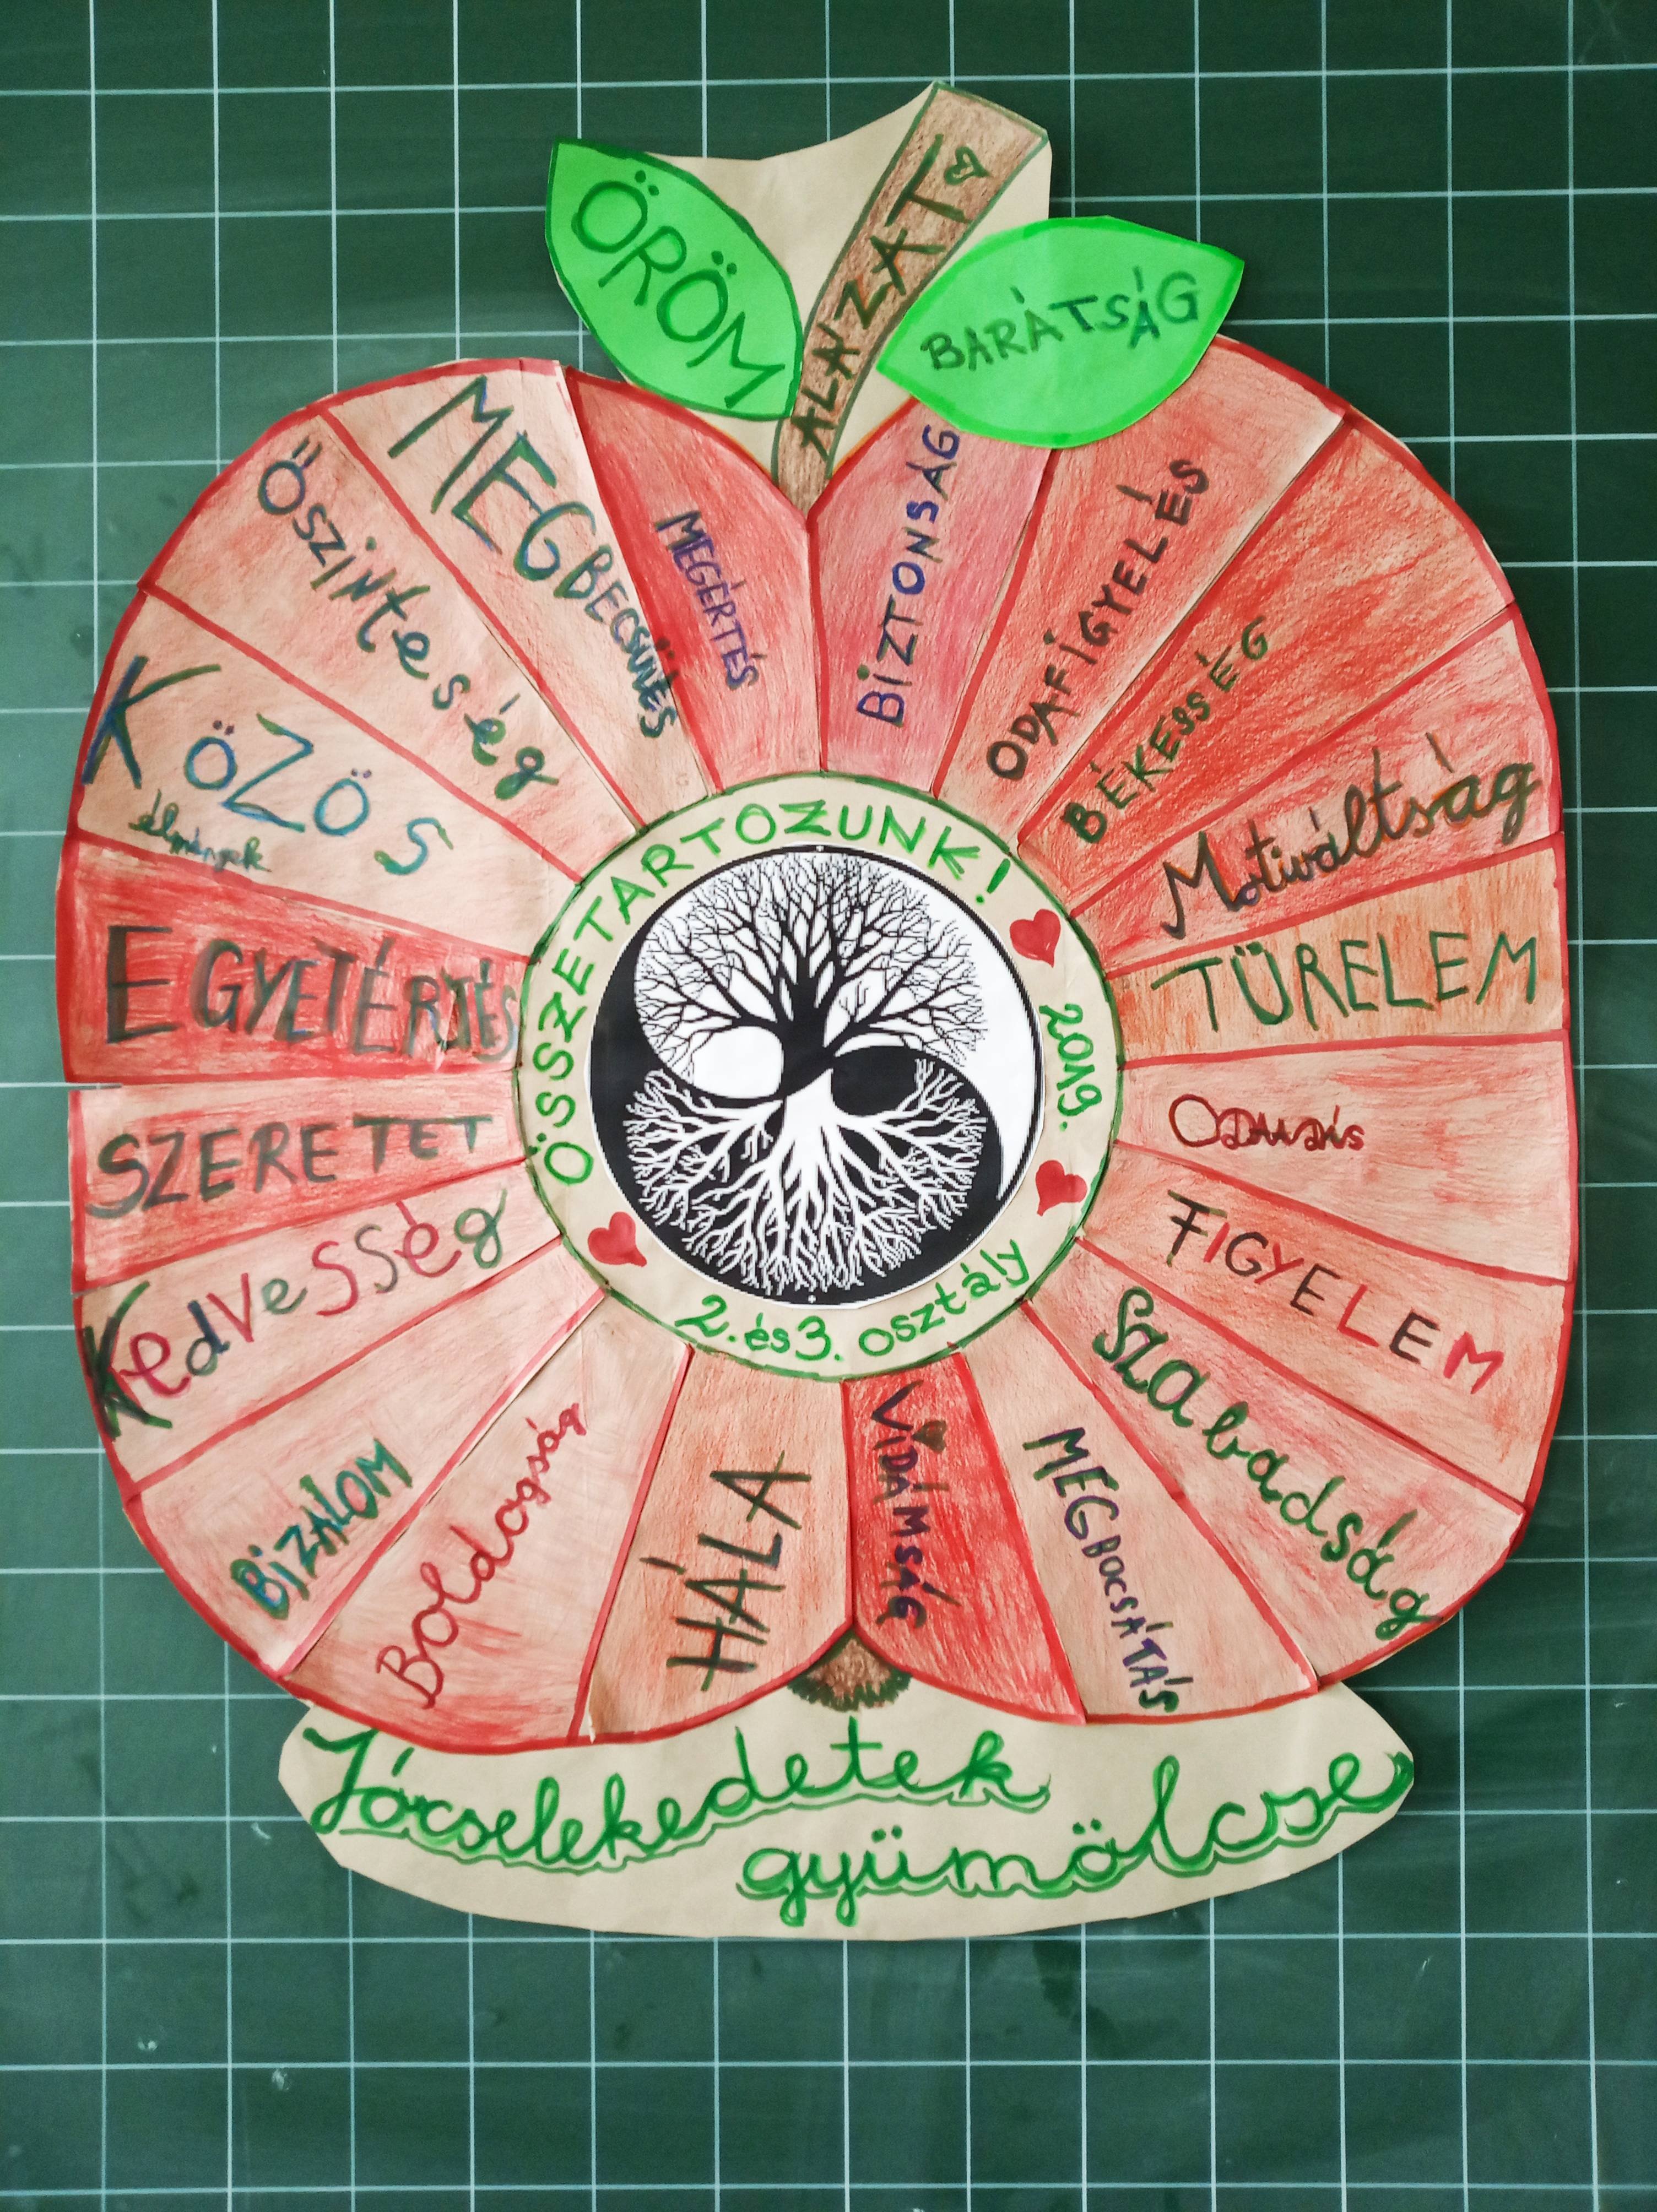 ÖRÖM
ALAZAT
BARÁTSÁG
BIZTONSÁG
ODAFIGYELÉS
BÉKESSÉG
Motiváltság
TÜRELEM
FIGYELEM
Szabadság
MEGBOCSÁTÁS
VIDÁMSÁG
HÁLA
Boldogság
BIZALOM
KedVeSSég
SZERETET
EGYETÉRTÉS
KÖZÖS
élmények
Őszinteség
MEGBECSÜLÉS
MEGÉRTÉS
ÖSSZETARTOZUNK!
2019.
2. és 3. osztály
Jócselekedetek
gyümölcse